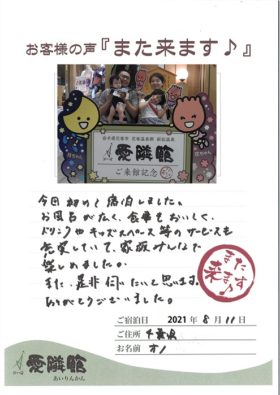 お客様の声『また来ます♪』
愛隣館
ご来館記念
今回初めて宿泊しました。
お風呂が広く、食事もおいしく、
ドリンクやキッズスペース等のサービスも
充実していて、家族みんなで
楽しめました。
また、是非伺いたいと思います。
ありがとうございました。
また来ます♪
ご宿泊日 2021年 8月 11日
ご住所 千葉県
お名前 オノ
愛隣館
あいりんかん